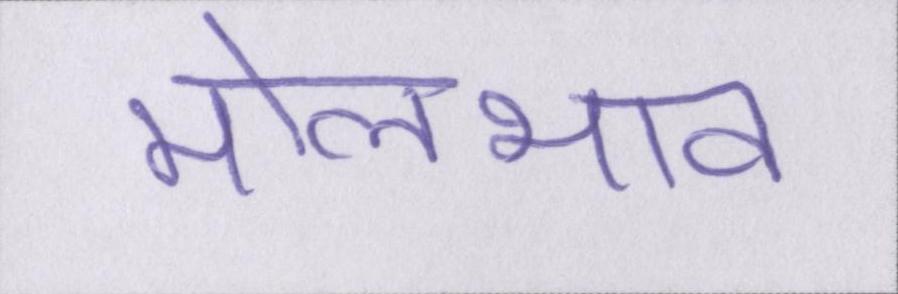 मोलभाव